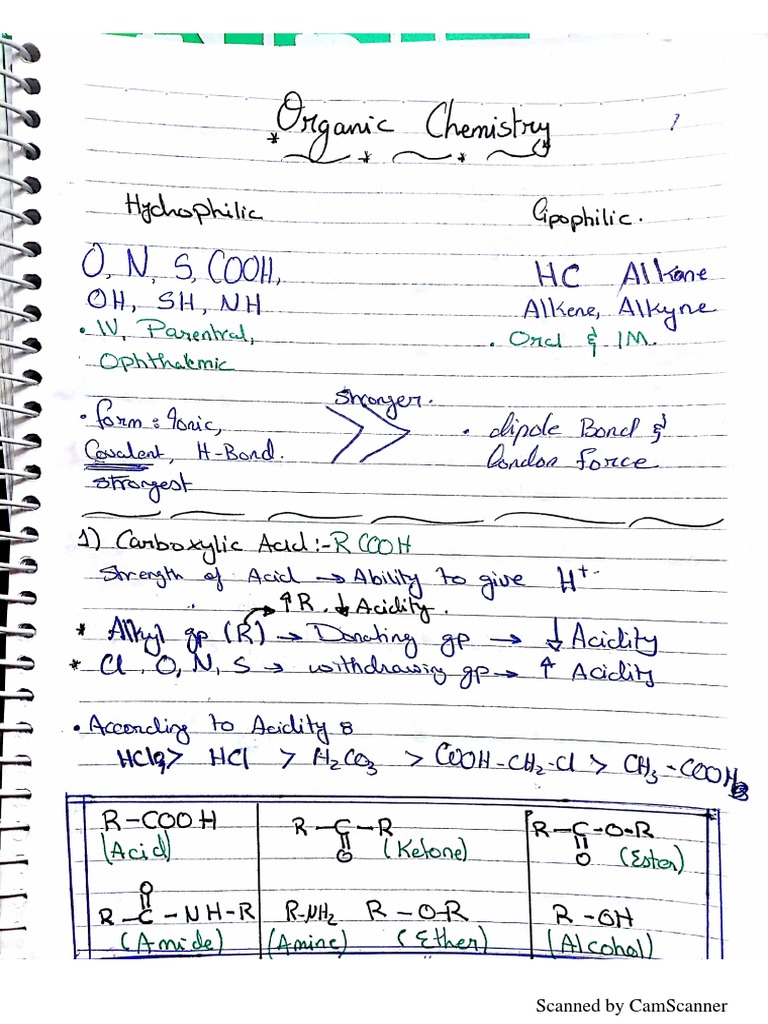 Organic Chemistry
Hydrophilic Lipophilic.
O, N, S, COOH, HC Alkane
OH, SH, NH Alkene, Alkyne
• IV, Parentral, • Oral & IM.
Ophthalmic
Stronger.
• form : Ionic, • dipole Bond &
Covalent, H-Bond. London Force
strongest
1) Carboxylic Acid :- R COOH
Strength of Acid → Ability to give H+
↑R. ↓ Acidity.
* Alkyl gp (R) → Donating gp → ↓ Acidity
* Cl, O, N, S → withdrawing gp → ↑ Acidity
• According to Acidity :
HCl > H2CO3 > COOH-CH2-Cl > CH3-COOH
R-COOH R-C-R R-C-O-R
(Acid) O (Ketone) O (Ester)
O
R-C-NH-R R-NH2 R-O-R R-OH
(Amide) (Amine) (Ether) (Alcohol)
Scanned by CamScanner